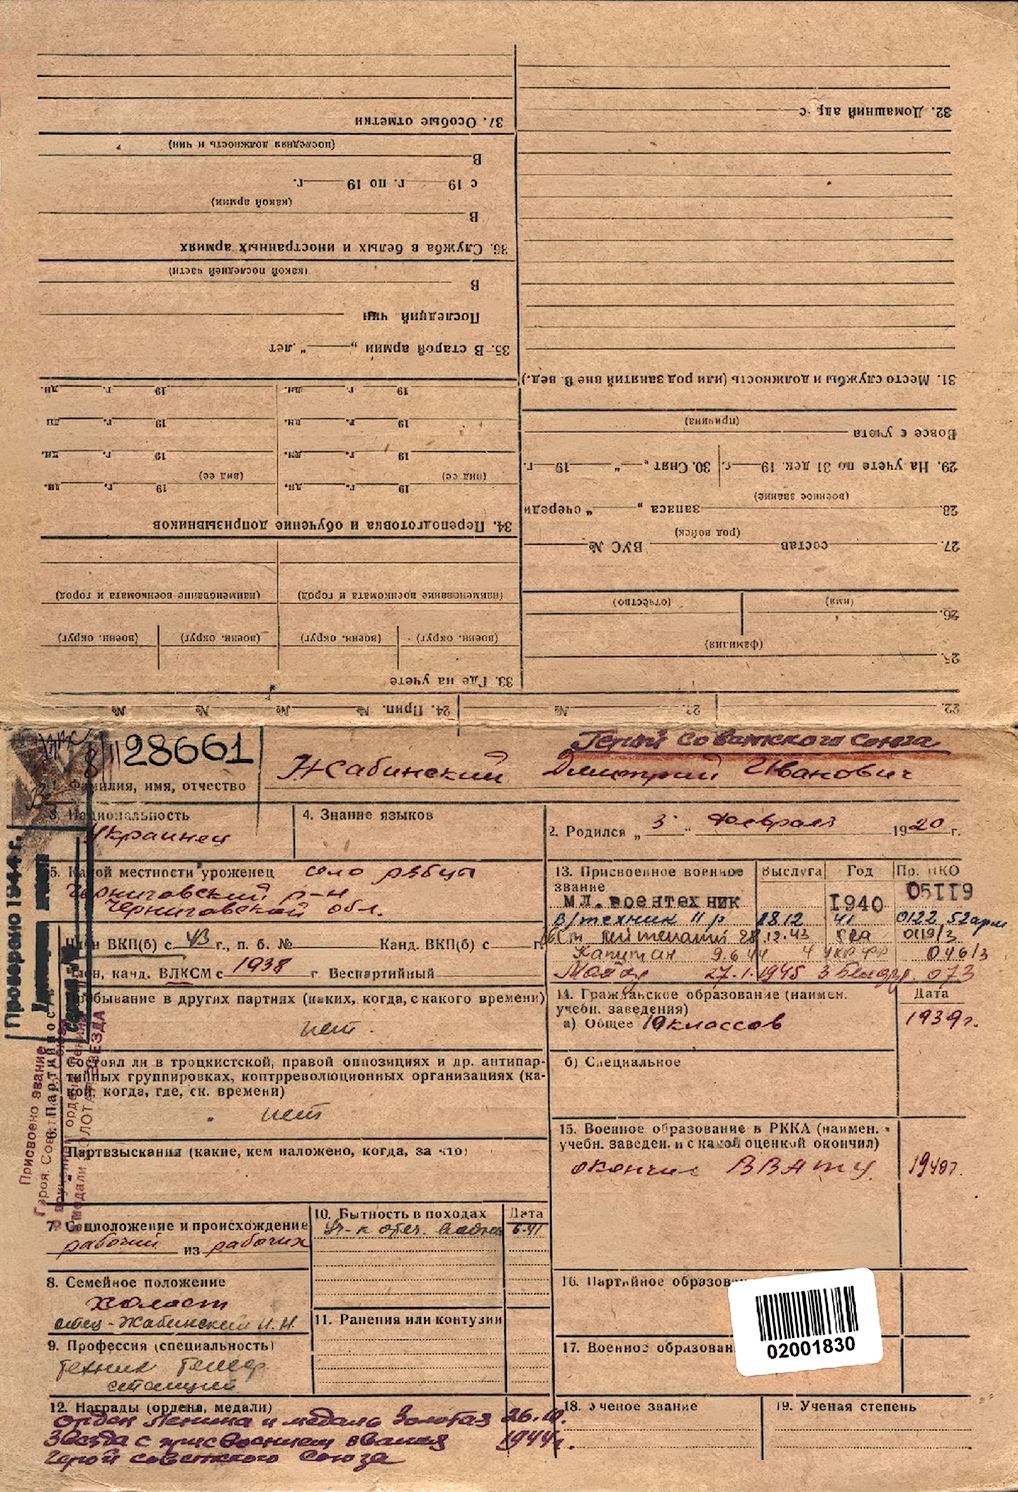 37. Особые отметки
(последняя должность и чин)
В
с 19 г. по 19 г.
(какой армии)
В
36. Служба в белых и иностранных армиях
(какой последней части)
В
Последний чин
35. В старой армии „ “ лет
19 г. дн. 19 г. дн.
19 г. дн. 19 г. дн.
19 г. дн. 19 г. дн.
(вид ее) (вид ее)
19 г. дн. 19 г. дн.
34. Переподготовка и обучение допризывников
(наименование военкомата и город) (наименование военкомата и город)
(военн. округ) (военн. округ) (военн. округ) (военн. округ)
33. Где на учете
32. Домашний адрес
31. Место службы и должность (или род занятий вне В. вед.)
(причина)
Вовсе с учета
29. На учете по 31 дек. 19 г. 30. Снят „ “ 19 г.
(военное звание)
28. запаса „ “ очереди
(род войск)
27. состав ВУС №
(имя) (отчество)
26.
(фамилия)
25.
22. 23. № 24. Прип. № № № №
28661
Герой Советского Союза
Жабинский Дмитрий Иванович
1. Фамилия, имя, отчество
3. Национальность
Украинец
4. Знание языков
2. Родился „ 3 “ Февраля 1920 г.
5. Какой местности уроженец село Рябцы
Черниговский р-н
Черниговской обл.
13. Присвоенное военное звание Выслуга Год Пр. НКО
Мл. воентехник 1940 05119
В/техник II р. 28.12 41 0122 52 арм
Ст. лейтенант 28.12.43 52а 0119/3
Капитан 9.6.44 4 Укр фр 046/3
Майор 27.1.1945 3 Белор. 073
Член ВКП(б) с 43 г., п. б. № Канд. ВКП(б) с г.
Член, канд. ВЛКСМ с 1938 г. Беспартийный
6. Партийность
Пребывание в других партиях (каких, когда, с какого времени)
нет.
Состоял ли в троцкистской, правой оппозициях и др. антипар-
тийных группировках, контрреволюционных организациях (ка-
кой, когда, ск. времени)
нет
Партвзыскания (какие, кем наложено, когда, за что)
14. Гражданское образование (наимен.
учебн. заведения) Дата
а) Общее 10 классов 1939 г.
б) Специальное
15. Военное образование в РККА (наимен.
учебн. заведен. и с какой оценкой окончил)
окончил ВВАТУ 1940 г.
7. Соцположение и происхождение
рабочий из рабочих
10. Бытность в походах Дата
Уч-к отеч. войны 6-41
8. Семейное положение
холост
отец-Жабинский И. Н.
11. Ранения или контузии
9. Профессия (специальность)
Техник
станций
16. Партийное образован
17. Военное образован
02001830
12. Награды (ордена, медали)
Орден Ленина и медаль Золотая 26.10.
Звезда с присвоением звания 1944 г.
Герой Советского Союза
18. Ученое звание
19. Ученая степень
Проверено 1944 г.
Присвоено звание
Героя Советского Союза